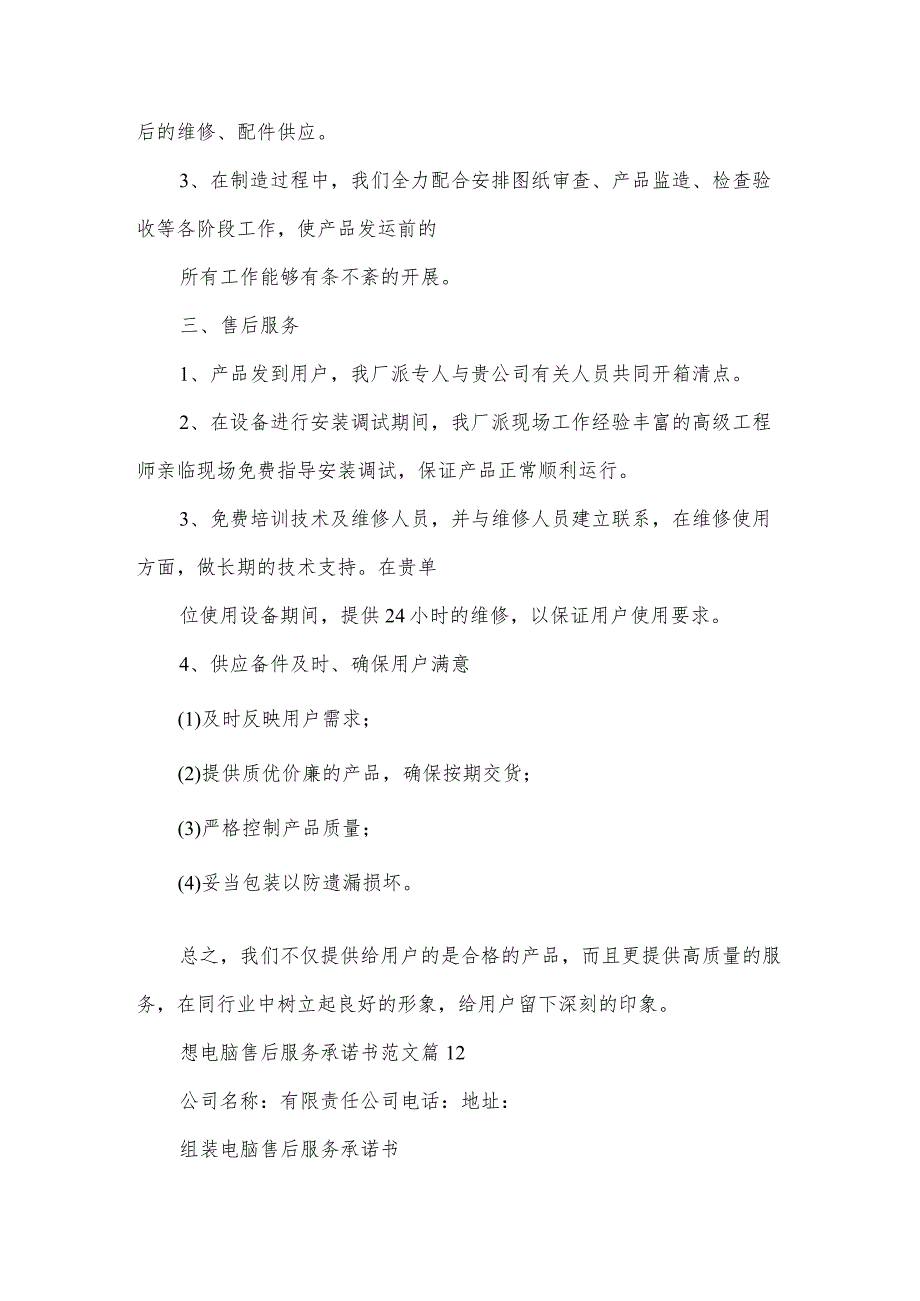 后的维修、配件供应。
3、在制造过程中，我们全力配合安排图纸审查、产品监造、检查验
收等各阶段工作，使产品发运前的
所有工作能够有条不紊的开展。
三、售后服务
1、产品发到用户，我厂派专人与贵公司有关人员共同开箱清点。
2、在设备进行安装调试期间，我厂派现场工作经验丰富的高级工程
师亲临现场免费指导安装调试，保证产品正常顺利运行。
3、免费培训技术及维修人员，并与维修人员建立联系，在维修使用
方面，做长期的技术支持。在贵单
位使用设备期间，提供24小时的维修，以保证用户使用要求。
4、供应备件及时、确保用户满意
(1)及时反映用户需求；
(2)提供质优价廉的产品，确保按期交货；
(3)严格控制产品质量；
(4)妥当包装以防遗漏损坏。
总之，我们不仅提供给用户的是合格的产品，而且更提供高质量的服
务，在同行业中树立起良好的形象，给用户留下深刻的印象。
想电脑售后服务承诺书范文篇12
公司名称：有限责任公司电话：地址：
组装电脑售后服务承诺书